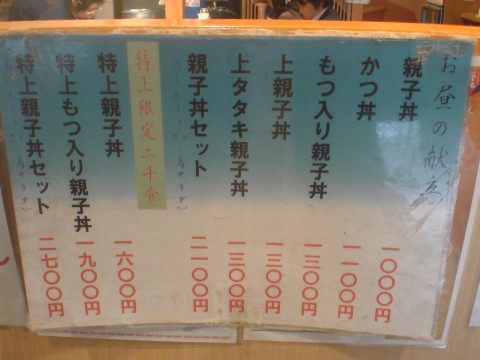 お昼の献立
親子丼 一〇〇〇円
かつ丼 一一〇〇円
もつ入り親子丼 一三〇〇円
上親子丼 一三〇〇円
上タタキ親子丼 一三〇〇円
親子丼セット 二一〇〇円
特上限定二十食
特上親子丼 一六〇〇円
特上もつ入り親子丼 一九〇〇円
特上親子丼セット 二七〇〇円